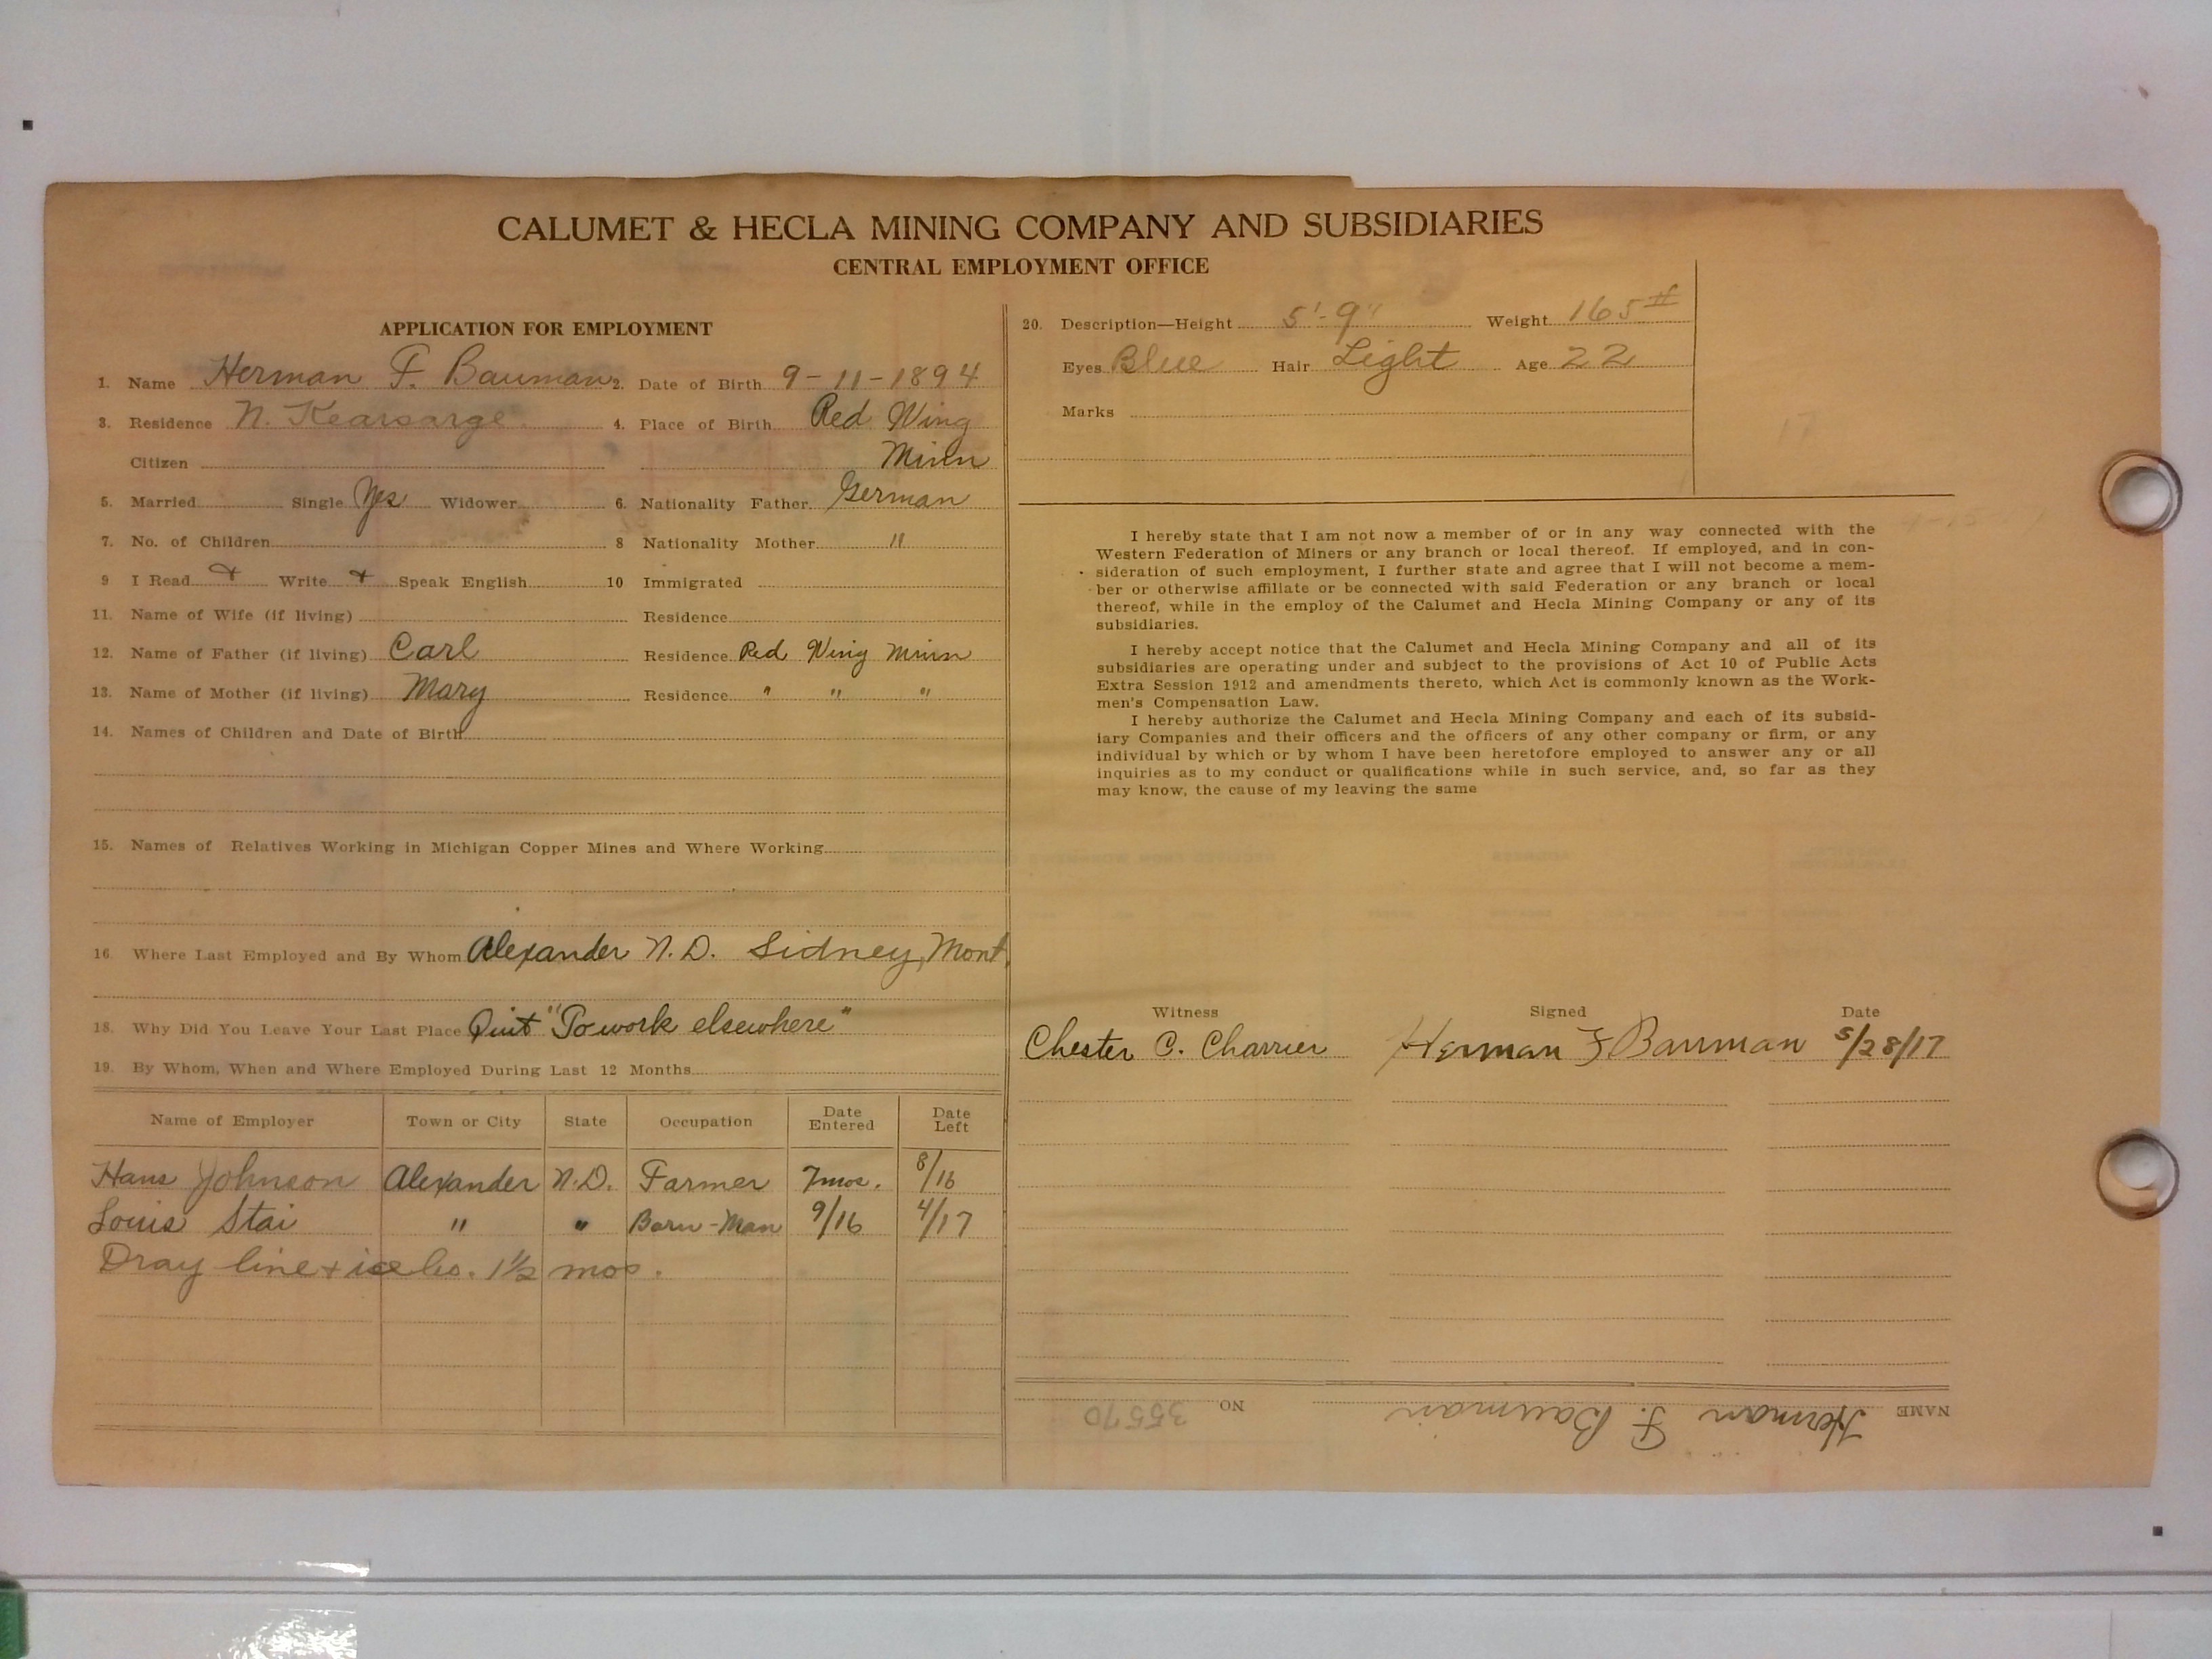 CALUMET & HECLA MINING COMPANY AND SUBSIDIARIES
CENTRAL EMPLOYMENT OFFICE
APPLICATION FOR EMPLOYMENT
1. Name Herman F. Bauman 2. Date of Birth 9-11-1894
3. Residence N. Kearsarge 4. Place of Birth Red Wing
Citizen Minn
5. Married Single Yes Widower 6. Nationality Father German
7. No. of Children 8 Nationality Mother "
9 I Read + Write + Speak English 10 Immigrated
11. Name of Wife (if living) Residence
12. Name of Father (if living) Carl Residence Red Wing Minn
13. Name of Mother (if living) Mary Residence " " "
14. Names of Children and Date of Birth
15. Names of Relatives Working in Michigan Copper Mines and Where Working
16. Where Last Employed and By Whom Alexander N.D. Sidney, Mont.
18. Why Did You Leave Your Last Place Quit "To work elsewhere"
19. By Whom, When and Where Employed During Last 12 Months
Name of Employer Town or City State Occupation Date Entered Date Left
Hans Johnson Alexander N.D. Farmer 7 mos. 8/16
Louis Stai " " Barn-Man 9/16 4/17
Dray line + ice Co. 1½ mos.
20. Description—Height 5'-9" Weight 165#
Eyes Blue Hair Light Age 22
Marks
I hereby state that I am not now a member of or in any way connected with the
Western Federation of Miners or any branch or local thereof. If employed, and in con-
sideration of such employment, I further state and agree that I will not become a mem-
ber or otherwise affiliate or be connected with said Federation or any branch or local
thereof, while in the employ of the Calumet and Hecla Mining Company or any of its
subsidiaries.
I hereby accept notice that the Calumet and Hecla Mining Company and all of its
subsidiaries are operating under and subject to the provisions of Act 10 of Public Acts
Extra Session 1912 and amendments thereto, which Act is commonly known as the Work-
men's Compensation Law.
I hereby authorize the Calumet and Hecla Mining Company and each of its subsid-
iary Companies and their officers and the officers of any other company or firm, or any
individual by which or by whom I have been heretofore employed to answer any or all
inquiries as to my conduct or qualifications while in such service, and, so far as they
may know, the cause of my leaving the same
Witness Signed Date
Chester C. Charrier Herman F Bauman 5/28/17
NAME Herman F. Bauman NO 35570